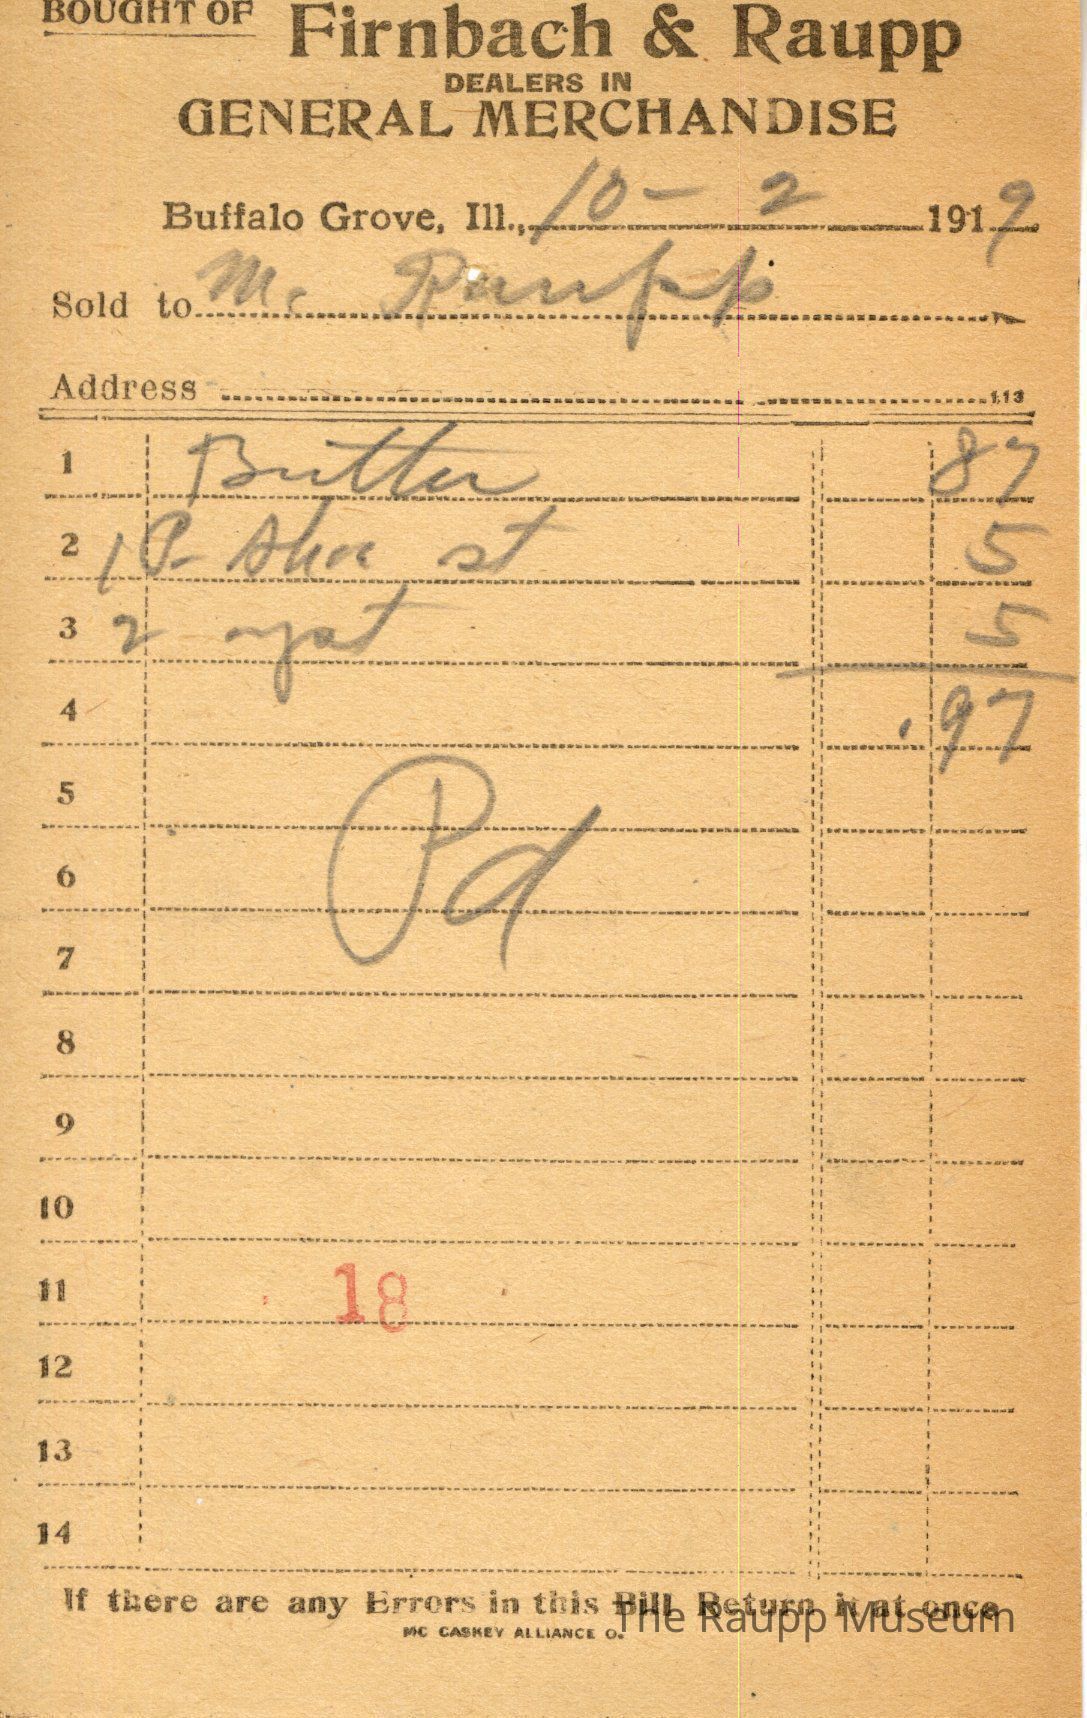 BOUGHT OF
Firnbach & Raupp
DEALERS IN
GENERAL MERCHANDISE
Buffalo Grove, Ill., 10 - 2 1919
Sold to Mr Raupp
Address 113
1 Butter 87
2 1 P. Shoe st 5
3 2 yst 5
4 .97
5
Pd
6
7
8
9
10
11 18
12
13
14
If there are any Errors in this Bill Return it at once
MC CASKEY ALLIANCE O.
The Raupp Museum